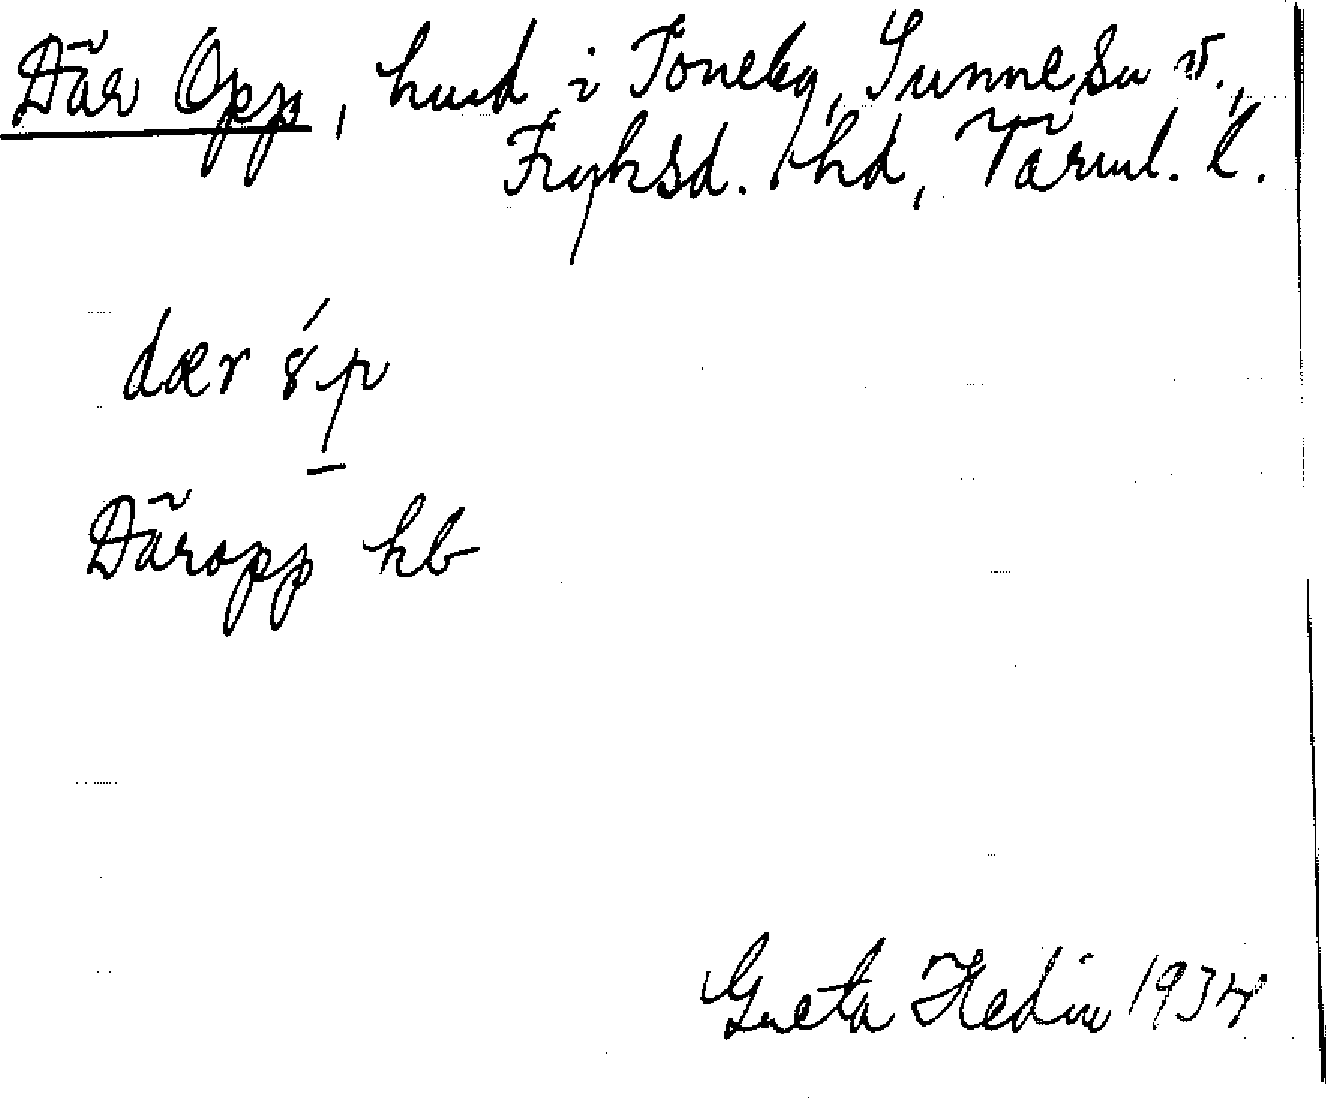 Där Opp, hus i Toneby, Sunne sn V.,
Fryksd. hd, Värml. l.
dær ɞ́p
Däropp hb
Greta Hedin 1934